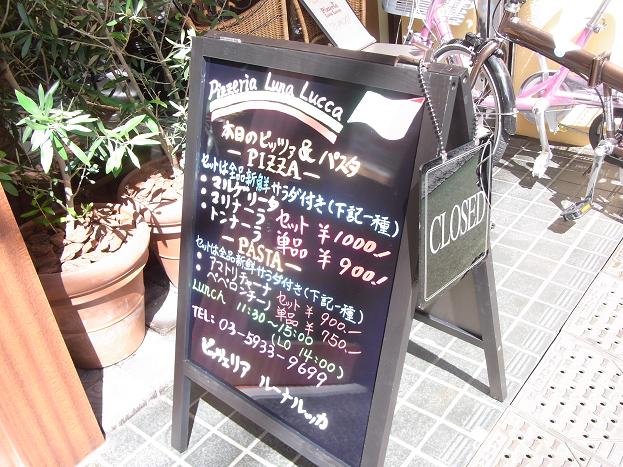 Pizzeria Luna Lucca
本日のピッツァ & パスタ
— PIZZA —
セットは全品新鮮サラダ付き(下記一種)
・マルゲリータ
・マリナーラ セット ¥1000.-
・トンナーラ 単品 ¥900.-
— PASTA —
セットは全品新鮮サラダ付き(下記一種)
・アマトリチャーナ セット ¥900.-
・ペペロンチーノ 単品 ¥750.-
Lunch 11:30~15:00
(LO 14:00)
TEL: 03-5933-9699
ピッツェリア ルーナルッカ
CLOSED